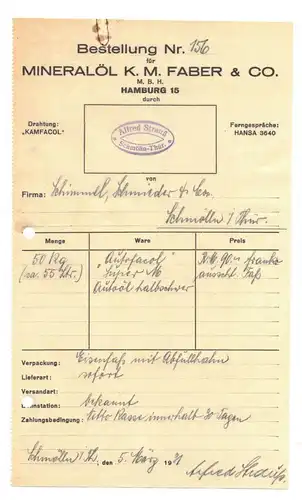 Bestellung Nr. 156
für
MINERALÖL K. M. FABER & CO.
M. B. H.
HAMBURG 15
durch
Drahtung:
„KAMFACOL"
Ferngespräche:
HANSA 3640
Alfred Strauß
Schmölln-Thür.
von
Firma: Schimmel, Schmieder & Co.
Schmölln i/Thür.
Menge Ware Preis
50 Kg „Autofacol" R.M. 90.- franko
(ca. 55 Ltr.) Super M ausschl. Faß
Autoöl halbschwer
Verpackung: Eisenfaß mit Abfüllhahn
Lieferart: sofort
Versandart:
Bahnstation: bekannt
Zahlungsbedingung: Netto Kasse innerhalb 30 Tagen
Schmölln i/Th., den 5. März 1931
Alfred Strauß